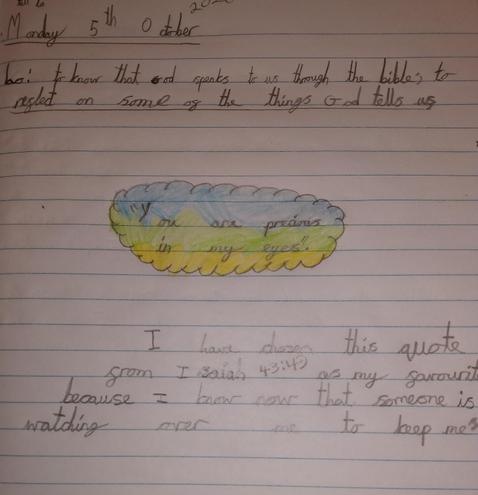 Monday 5th October
L.O: to know that God speaks to us through the bible, to
reflect on some of the things God tells us
"You are precious
in my eyes".
I have chosen this quote
from Isaiah 43:4 as my favourit
because I know now that someone is
watching over me to keep me